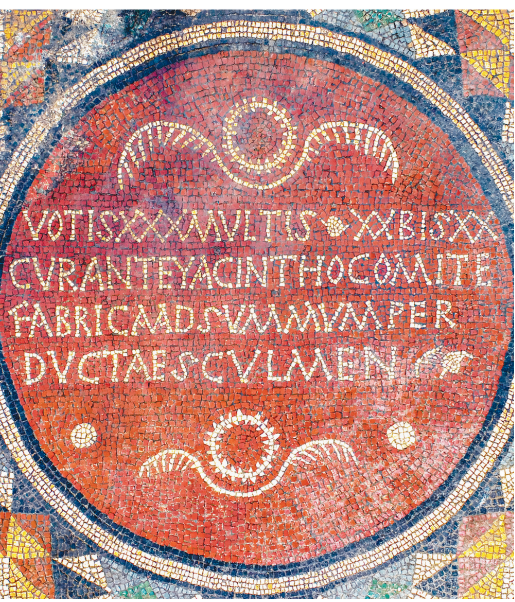 VOTISXXXMULTIS XXBISXX
CVRANTEYACINTHOCOMITE
FABRICAADSVMMVMPER
DVCTAESCVLMEN